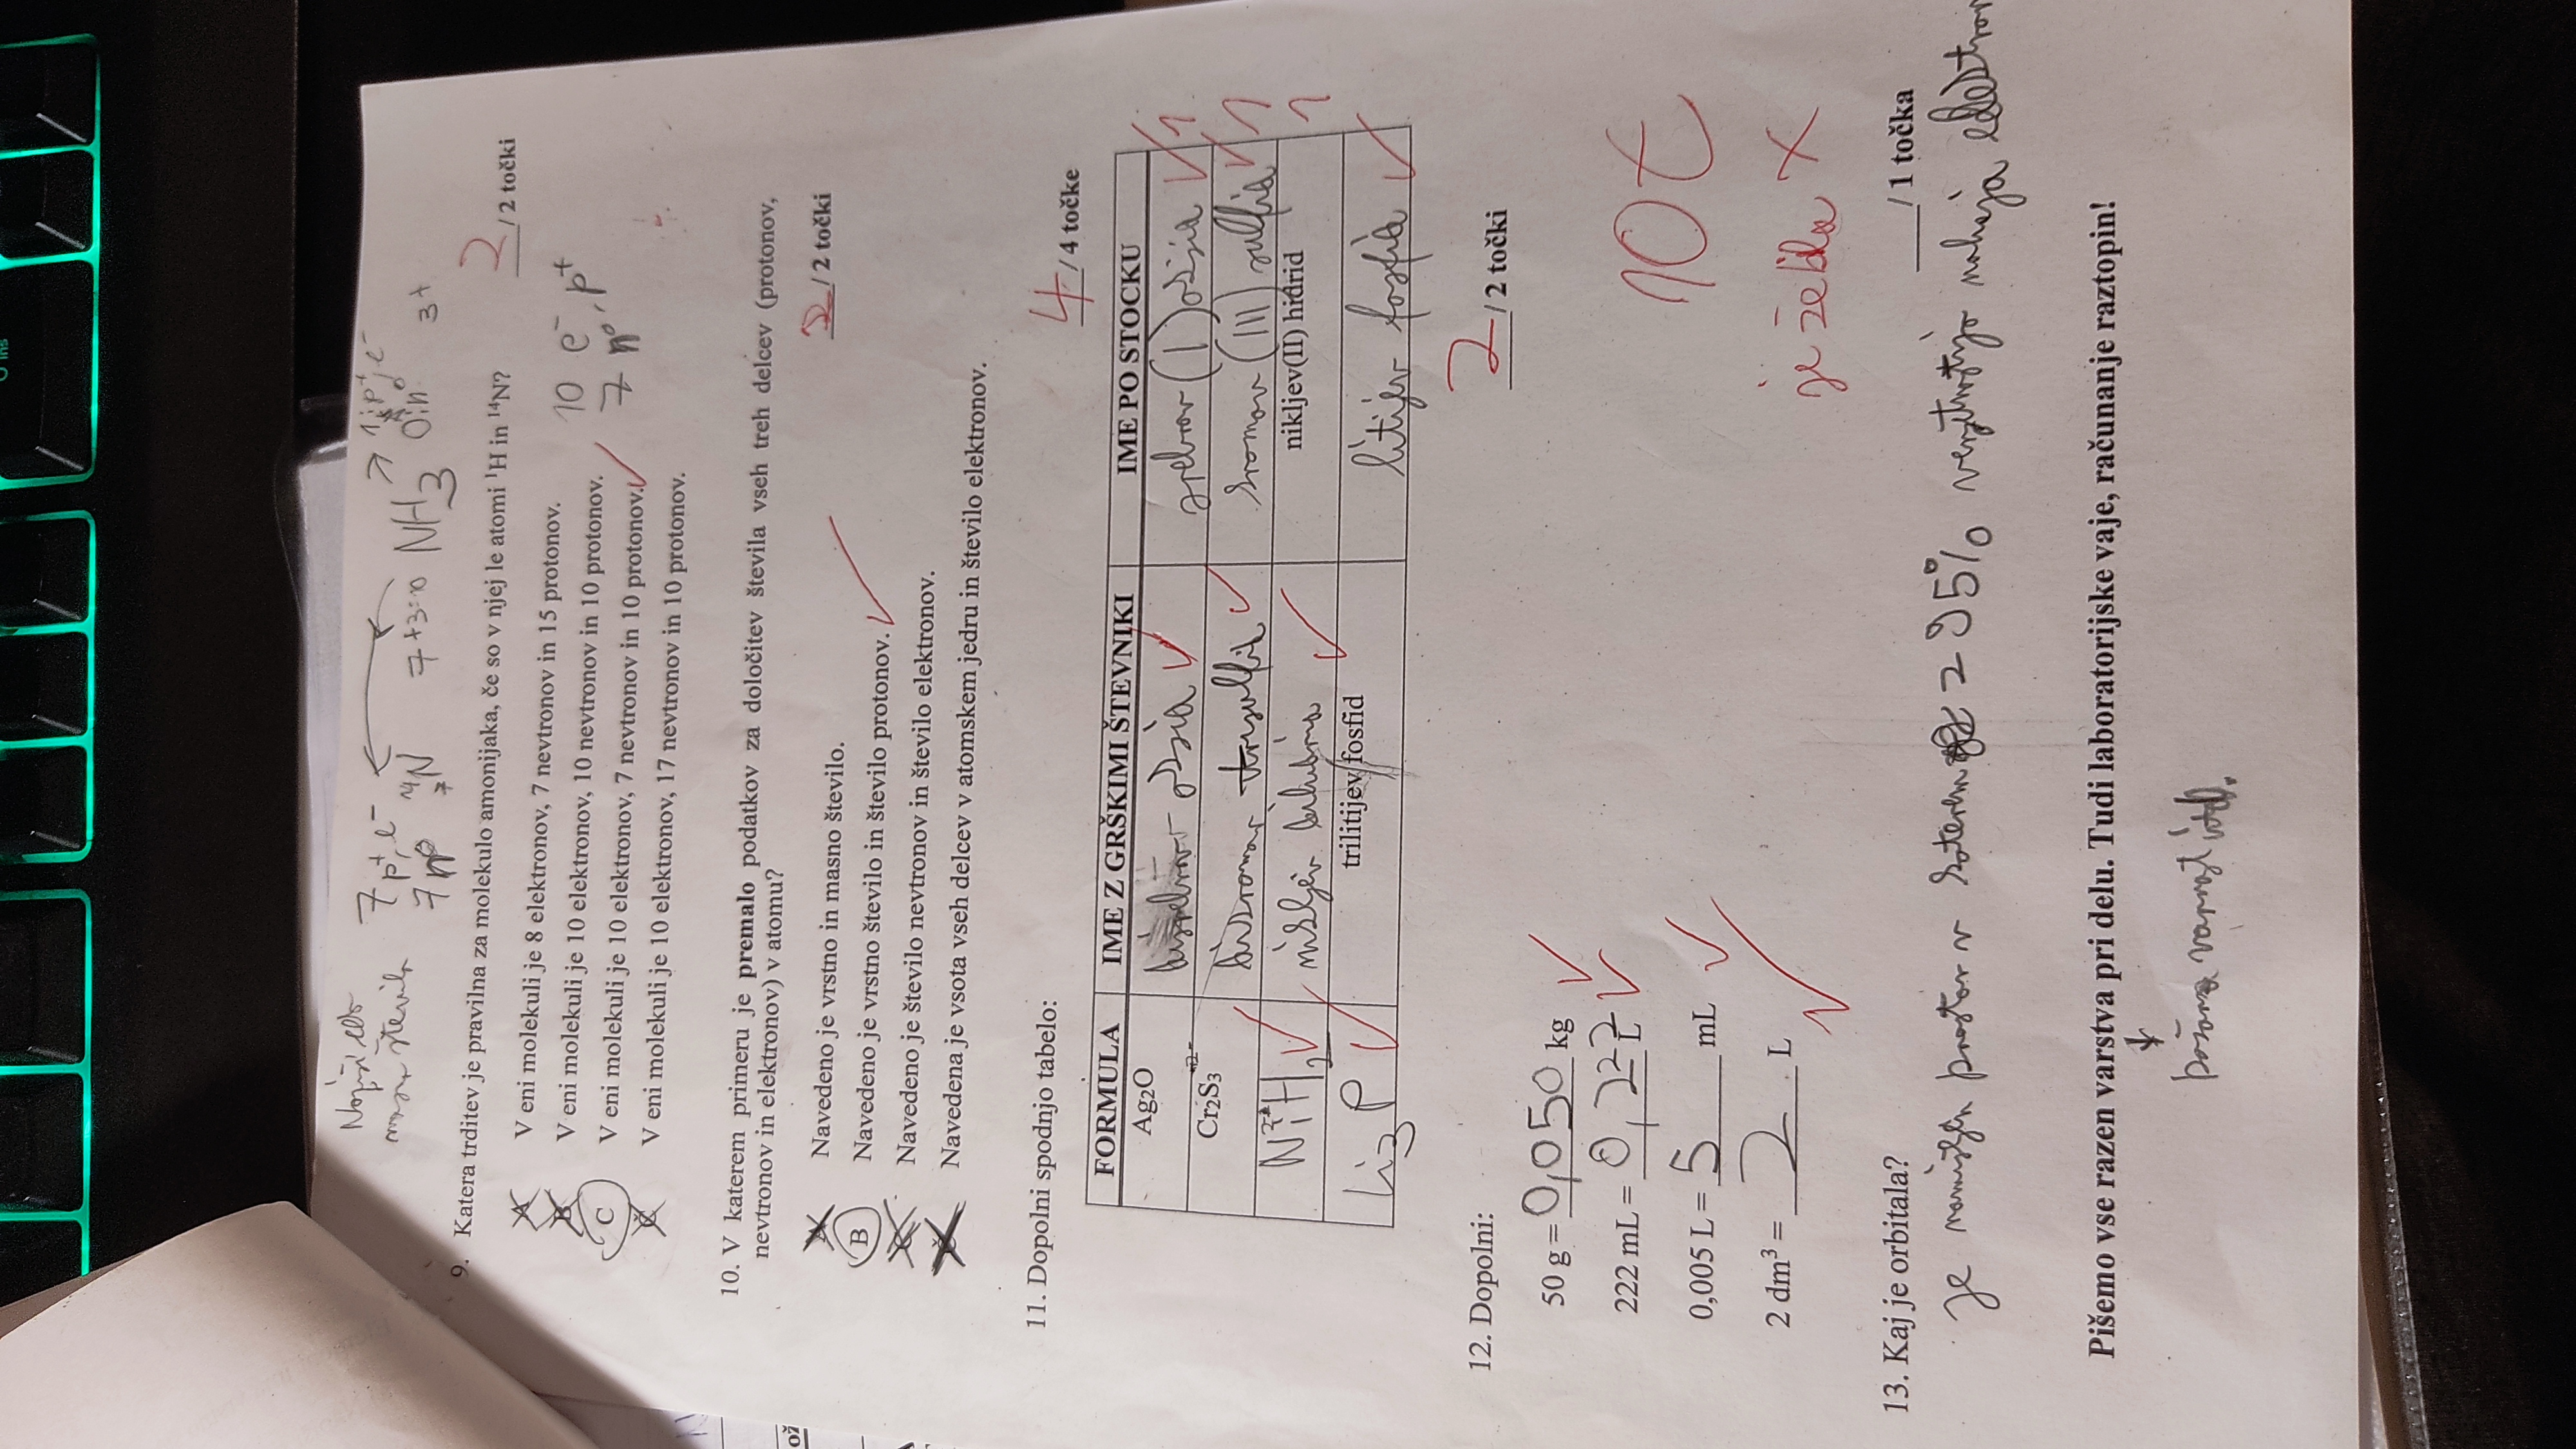 ins
Napiši
masna števila
7 p⁺, e⁻
7 n⁰
¹⁴₇N
7+3=10
NH₃
1: p⁺, e⁻
0: n⁰
3+
9. Katera trditev je pravilna za molekulo amonijaka, če so v njej le atomi ¹H in ¹⁴N?
2/2 točki
A V eni molekuli je 8 elektronov, 7 nevtronov in 15 protonov.
B V eni molekuli je 10 elektronov, 10 nevtronov in 10 protonov.
C V eni molekuli je 10 elektronov, 7 nevtronov in 10 protonov.
Č V eni molekuli je 10 elektronov, 17 nevtronov in 10 protonov.
10 e⁻, p⁺
7 n⁰
10. V katerem primeru je premalo podatkov za določitev števila vseh treh delcev (protonov,
nevtronov in elektronov) v atomu?
2/2 točki
A Navedeno je vrstno in masno število.
B Navedeno je vrstno število in število protonov.
C Navedeno je število nevtronov in število elektronov.
Č Navedena je vsota vseh delcev v atomskem jedru in število elektronov.
11. Dopolni spodnjo tabelo:
4/4 točke
FORMULA IME Z GRŠKIMI ŠTEVNIKI IME PO STOCKU
Ag₂O disrebrov oksid srebrov (I) oksid 1
Cr₂S₃ dikromov trisulfid kromov (III) sulfid 1
NiH₂ nikljev dihidrid nikljev(II) hidrid 1
Li₃P trilitijev fosfid litijev fosfid
12. Dopolni:
2/2 točki
50 g = 0,050 kg
222 mL = 0,222 L
0,005 L = 5 mL
2 dm³ = 2 L
10t
je že bila X
13. Kaj je orbitala?
/1 točka
je namišljen prostor v katerem se z 95% verjetnostjo nahaja elektron
Pišemo vse razen varstva pri delu. Tudi laboratorijske vaje, računanje raztopin!
požarna varnost itd.